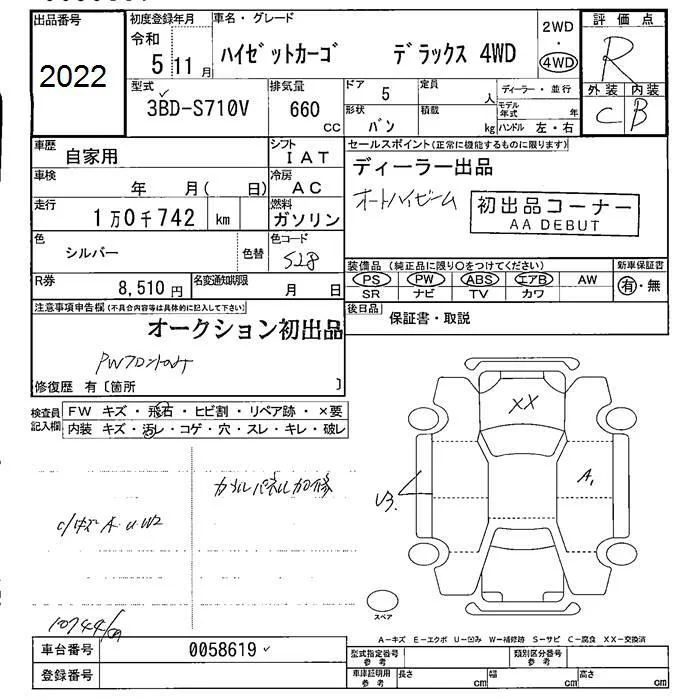 出品番号 初度登録年月 車名・グレード 2WD 評価点
令和 5 11月 ハイゼットカーゴ デラックス 4WD 4WD R
2022 型式 排気量 ドア 5 定員 人 ディーラー・並行 外装 内装
3BD-S710V 660 CC 形状 バン 積載 kg モデル年式 年 ハンドル 左・右 C B
車歴 自家用 シフト IAT セールスポイント(正常に機能するものに限ります)
車検 年 月( 日) 冷房 AC ディーラー出品
走行 1万0千742 km 燃料 ガソリン オートハイビーム 初出品コーナー
AA DEBUT
色 シルバー 色替 色コード S28
装備品(純正品に限り○をつけてください) 新車保証書
R券 8,510円 名変通知期限 月 日 PS PW ABS エアB AW 有・無
SR ナビ TV カワ
注意事項申告欄(不具合内容等は具体的に記入して下さい) 後日品 保証書・取説
オークション初出品
PWフロントのみ
修復歴 有〔箇所 〕
検査員記入欄 FW キズ・飛石・ヒビ割・リペア跡・×要
内装 キズ・汚レ・コゲ・穴・スレ・キレ・破レ
XX
A1
U3.
C/キズ A・U W2
スペア
10744
A-キズ E-エクボ U-凹み W-補修跡 S-サビ C-腐食 XX-交換済
車台番号 0058619 型式指定番号 参考 類別区分番号 参考
登録番号 車庫証明用 参考 長さ cm 幅 cm 高さ cm